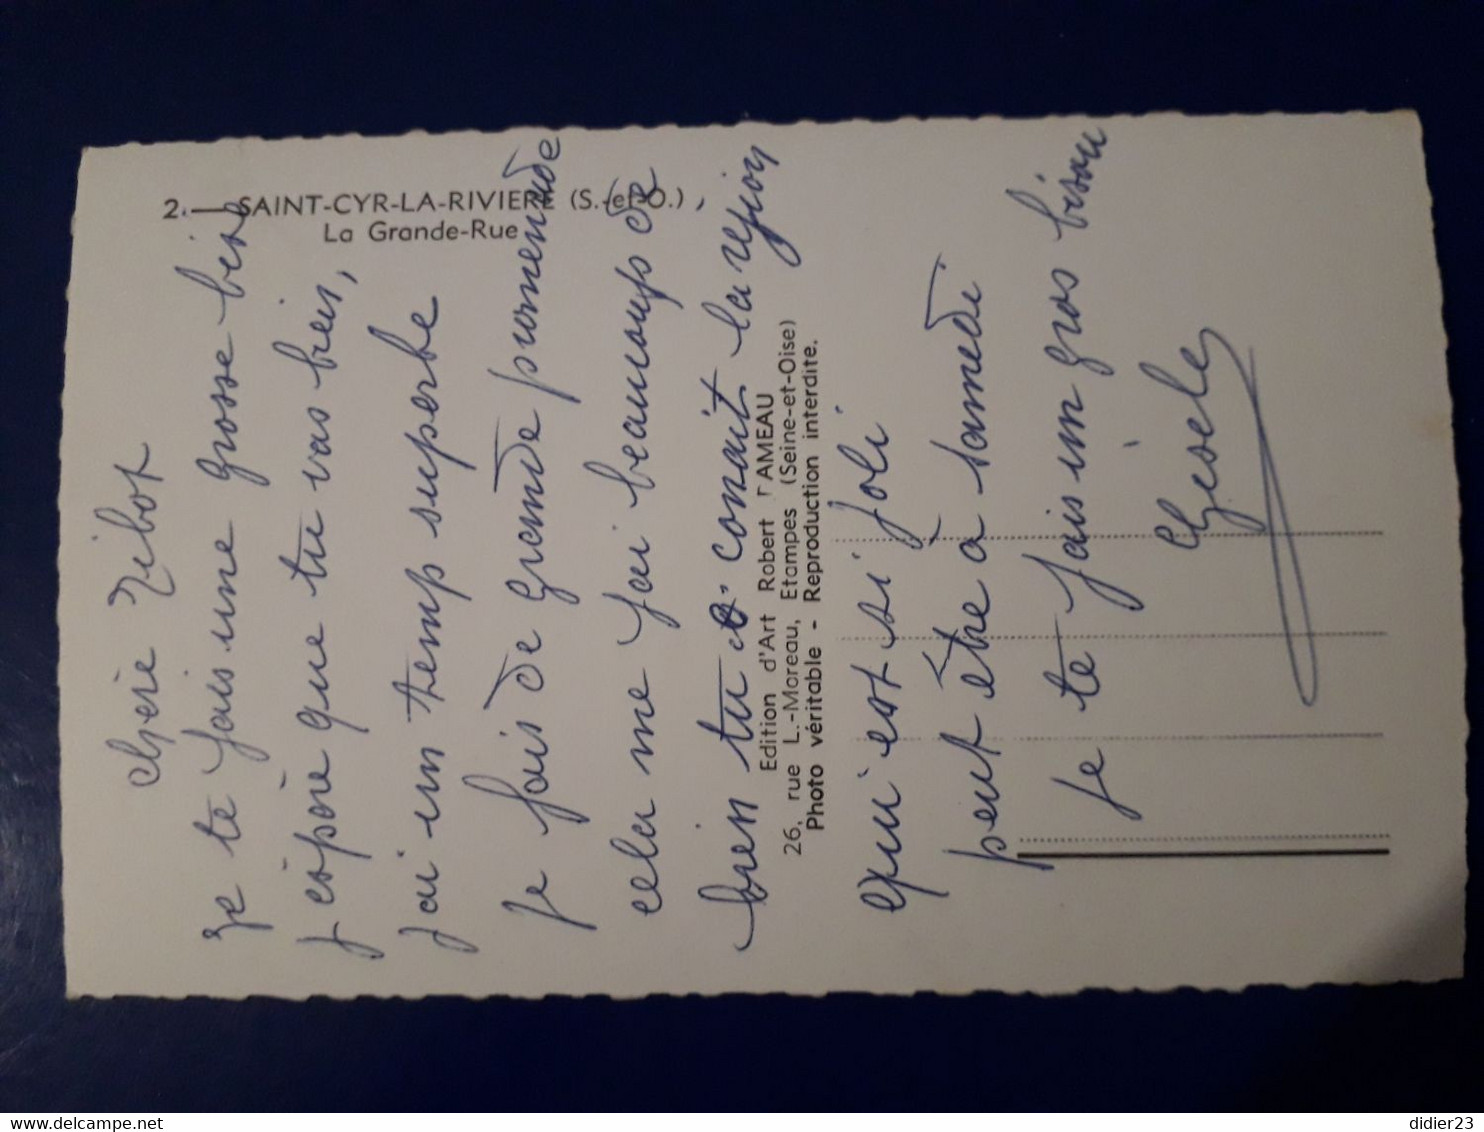 2. — SAINT-CYR-LA-RIVIERE (S.-et-O.)
La Grande-Rue
Edition d'Art Robert RAMEAU
26, rue L.-Moreau, Etampes (Seine-et-Oise)
Photo véritable - Reproduction interdite.
chère
Je te fais une grosse bise
J'espère que tu vas bien,
J'ai un temp superbe
Je fais de grande promenade
cela me fai beaucoups de
bien tu conait la region
qui est si joli
peut être a samedi
Je te fais un gros bisou
Gisele
didier23